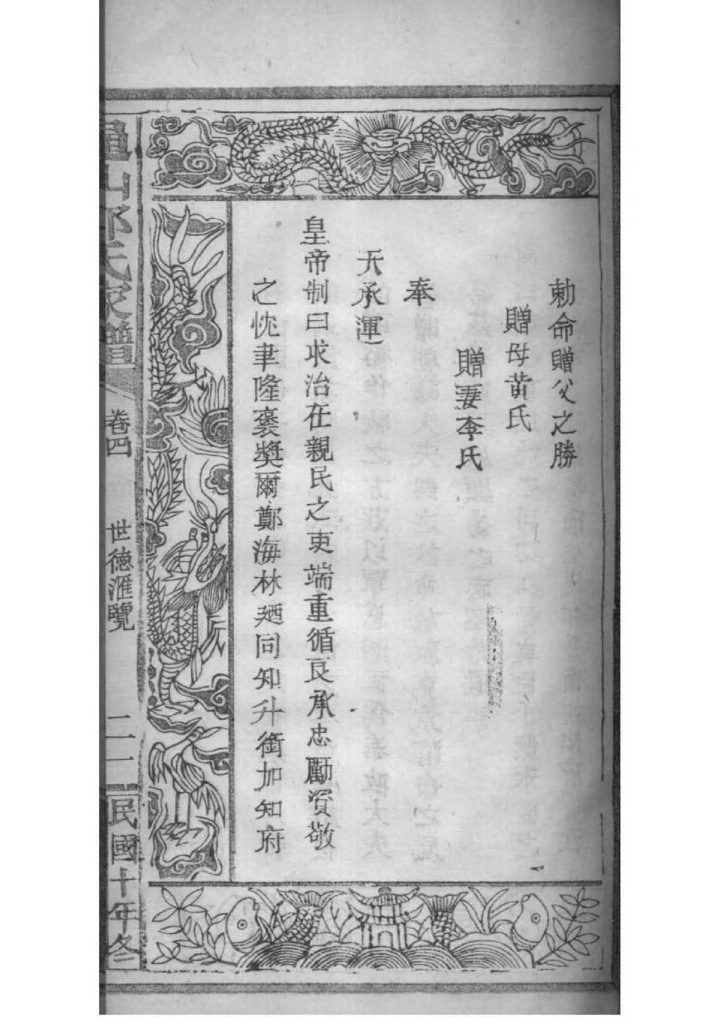 勅命贈父之勝
贈母黄氏
贈妻李氏
奉
天承運
皇帝制曰求治在親民之吏端重循良承忠勵資敬
之忱聿隆褒奬爾鄭海林廼同知升銜加知府
山鄭氏家譜
卷四
世德滙覽
民國十年冬